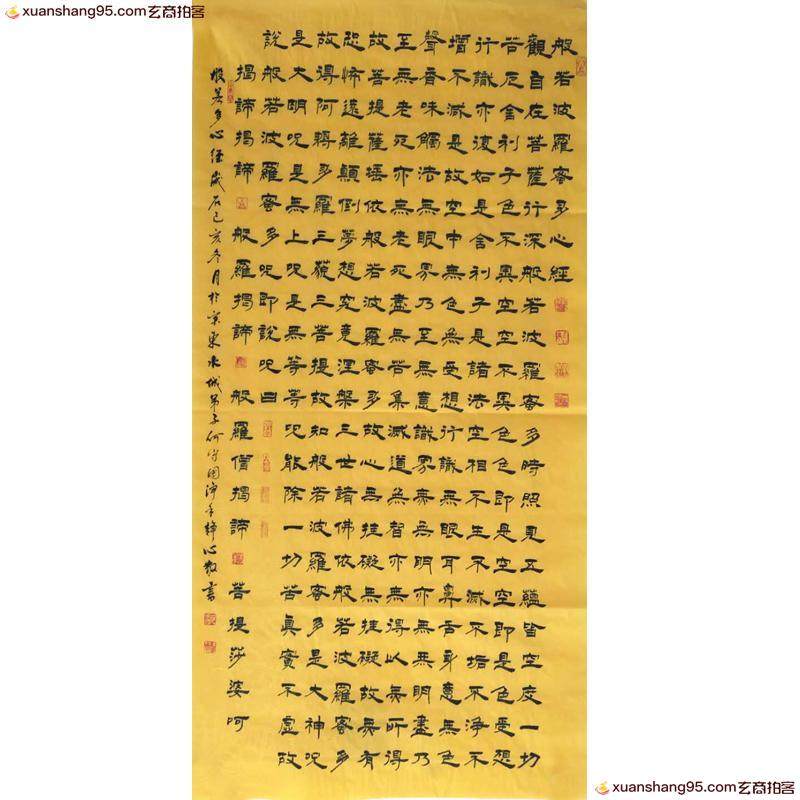 xuanshang95.com玄商拍客
xuanshang95.com玄商拍客
般若波羅蜜多心經
觀自在菩薩行深般若波羅蜜多時照見五蘊皆空度一切
苦厄舍利子色不異空空不異色色即是空空即是色受想
行識亦復如是舍利子是諸法空相不生不滅不垢不淨不
增不減是故空中無色無受想行識無眼耳鼻舌身意無色
聲香味觸法無眼界乃至無意識界無無明亦無無明盡乃
至無老死亦無老死盡無苦集滅道無智亦無得以無所得
故菩提薩埵依般若波羅蜜多故心無挂礙無挂礙故無有
恐怖遠離顛倒夢想究竟涅槃三世諸佛依般若波羅蜜多
故得阿耨多羅三藐三菩提故知般若波羅蜜多是大神呪
是大明呪是無上呪是無等等呪能除一切苦真實不虛故
說般若波羅蜜多呪即說呪曰
揭諦揭諦 般羅揭諦 般羅僧揭諦 菩提莎婆呵
般若多心經歲在己亥冬月於冀東水城弟子何守國淨手靜心敬書
xuanshang95.com玄商拍客